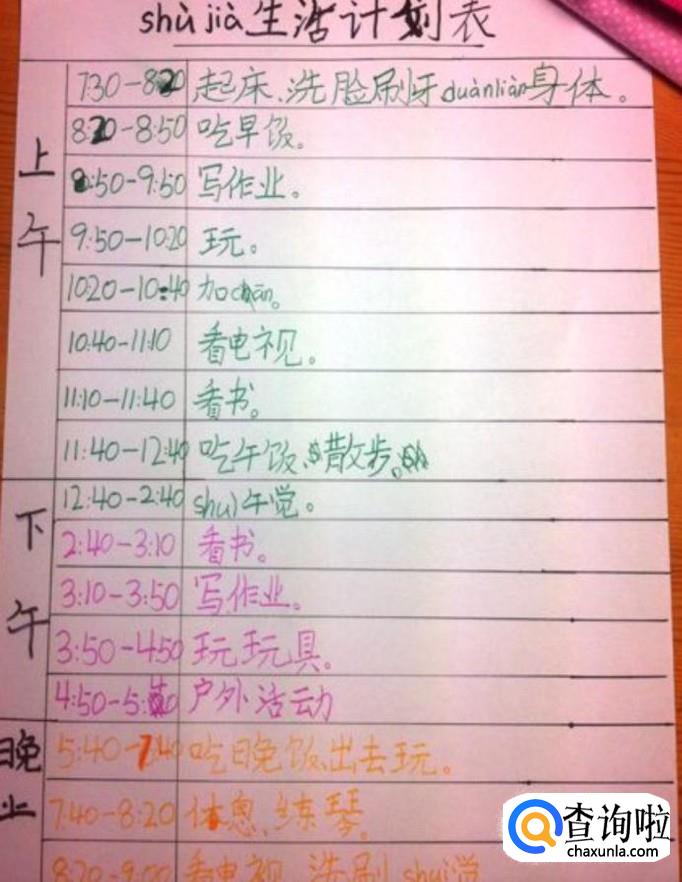 shù jià生活计划表
上午
7:30-8:20 起床、洗脸刷牙duànliàn身体。
8:20-8:50 吃早饭。
8:50-9:50 写作业。
9:50-10:20 玩。
10:20-10:40 加chān。
10:40-11:10 看电视。
11:10-11:40 看书。
11:40-12:40 吃午饭、散步。
下午
12:40-2:40 shuì午觉。
2:40-3:10 看书。
3:10-3:50 写作业。
3:50-4:50 玩玩具。
4:50-5:40 户外活动
晚上
5:40-7:40 吃晚饭、出去玩。
7:40-8:20 休息、练琴。
8:20-9:00 看电视、洗刷、shuì觉
查询啦
chaxunla.com